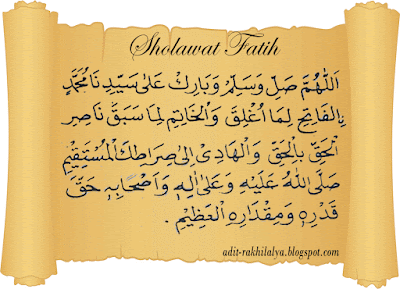 Sholawat Fatih
اَللّٰهُمَّ صَلِّ وَسَلِّمْ وَبَارِكْ عَلٰى سَيِّدِنَا مُحَمَّدٍ
بِالْفَاتِحِ لِمَا اُغْلِقَ وَالْخَاتِمِ لِمَا سَبَقَ نَاصِرِ
الْحَقِّ بِالْحَقِّ وَالْهَادِيْ اِلٰى صِرَاطِكَ الْمُسْتَقِيْمِ
صَلَّى اللهُ عَلَيْهِ وَعَلٰى اٰلِهٖ وَاَصْحَابِهٖ حَقَّ
قَدْرِهٖ وَمِقْدَارِهِ الْعَظِيْمِ .
adit-rakhilalya.blogspot.com